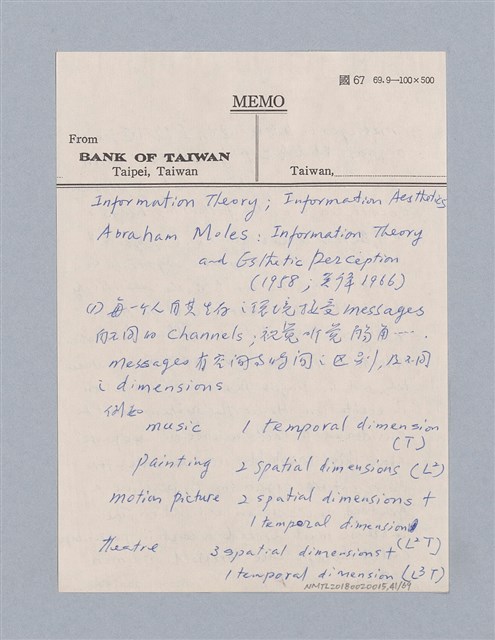 國 67 69.9—100×500
MEMO
From
BANK OF TAIWAN
Taipei, Taiwan
Taiwan,
Information Theory; Information Aesthetics
Abraham Moles: Information Theory
and Esthetic Perception
(1958; 英譯1966)
(1) 每一个人自其生存之環境接受 messages
自不同的 channels; 視覚听覚觸角….
messages 有空间与時间之区别, 及不同
之 dimensions
例如
music 1 temporal dimension
(T)
painting 2 spatial dimensions (L²)
motion picture 2 spatial dimensions +
1 temporal dimension
(L²T)
theatre 3 spatial dimensions +
1 temporal dimension (L³T)
NMTL20180020015,41/69